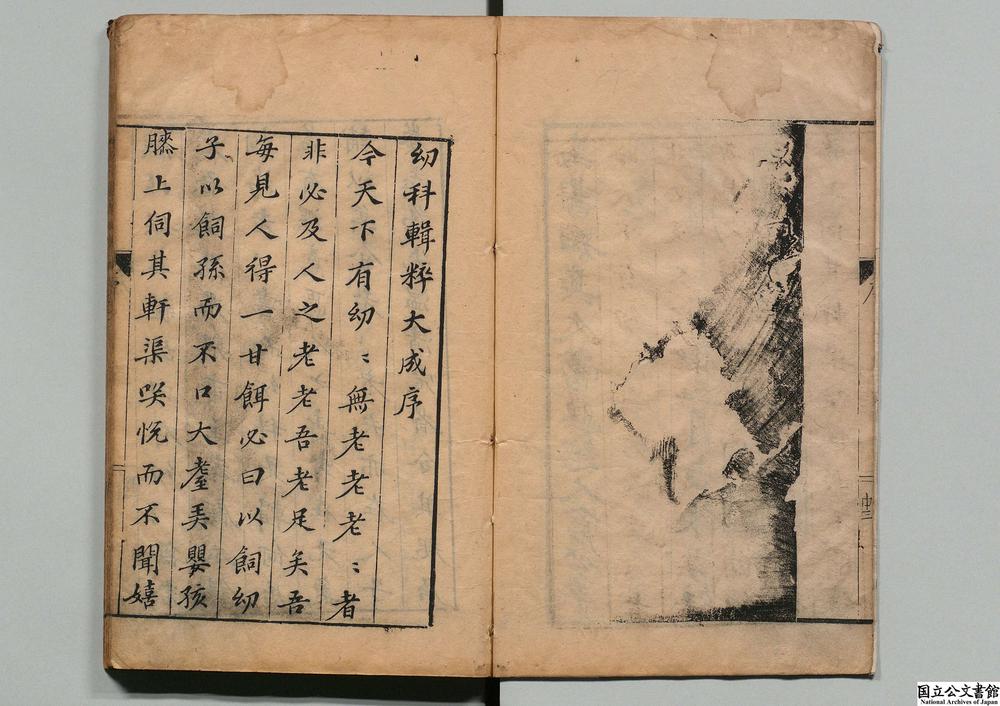 幼科輯粹大成序
今天下有幼〻無老老老〻者
非必及人之老老吾老足矣吾
每見人得一甘餌必曰以飼幼
子以飼孫而不口大耋弄嬰孩
膝上伺其軒渠咲悦而不聞嬉
国立公文書館
National Archives of Japan